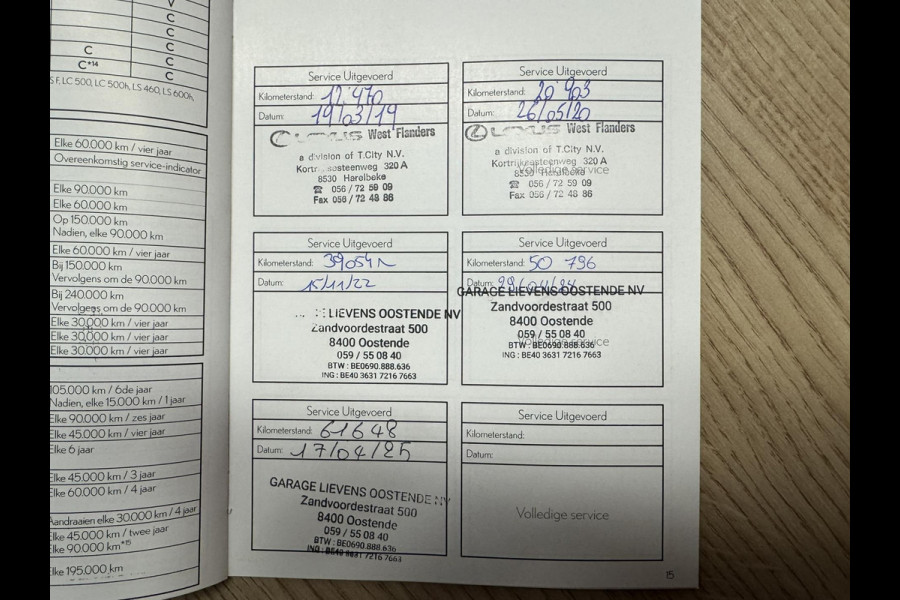 V
C
C
C
C
C*14
C
S F, LC 500, LC 500h, LS 460, LS 600h,
Elke 60.000 km / vier jaar
Overeenkomstig service-indicator
Elke 90.000 km
Elke 60.000 km
Op 150.000 km
Nadien, elke 90.000 km
Elke 60.000 km / vier jaar
Bij 150.000 km
Vervolgens om de 90.000 km
Bij 240.000 km
Vervolgens om de 90.000 km
Elke 30.000 km / vier jaar
Elke 30.000 km / vier jaar
Elke 30.000 km / vier jaar
105.000 km / 6de jaar
Nadien, elke 15.000 km / 1 jaar
Elke 90.000 km / zes jaar
Elke 45.000 km / vier jaar
Elke 6 jaar
Elke 45.000 km / 3 jaar
Elke 60.000 km / 4 jaar
Aandraaien elke 30.000 km / 4 jaar
Elke 45.000 km / twee jaar
Elke 90.000 km*15
Elke 195.000 km
Service Uitgevoerd
Kilometerstand: 12.470
Datum: 19/03/19
LEXUS West Flanders
a division of T.City N.V.
320 A
8530 Harelbeke
☎ 056 / 72 59 09
Fax 056 / 72 48 86
Service Uitgevoerd
Kilometerstand: 20 903
Datum: 26/05/20
LEXUS West Flanders
a division of T.City N.V.
Kortrijksesteenweg 320 A
Volledige service
8530 Harelbeke
☎ 056 / 72 59 09
Fax 056 / 72 48 86
Service Uitgevoerd
Kilometerstand: 39054
Datum: 15/11/22
LIEVENS OOSTENDE NV
Zandvoordestraat 500
8400 Oostende
059 / 55 08 40
BTW : BE0690.888.636
ING : BE40 3631 7216 7663
Service Uitgevoerd
Kilometerstand: 50 796
Datum:
GARAGE LIEVENS OOSTENDE NV
Zandvoordestraat 500
8400 Oostende
059 / 55 08 40
Volledige service
BTW : BE0690.888.636
ING : BE40 3631 7216 7663
Service Uitgevoerd
Kilometerstand: 61648
Datum: 17/04/25
GARAGE LIEVENS OOSTENDE NV
Zandvoordestraat 500
8400 Oostende
059 / 55 08 40
BTW : BE0690.888.636
ING : BE40 3631 7216 7663
Service Uitgevoerd
Kilometerstand:
Datum:
Volledige service
15